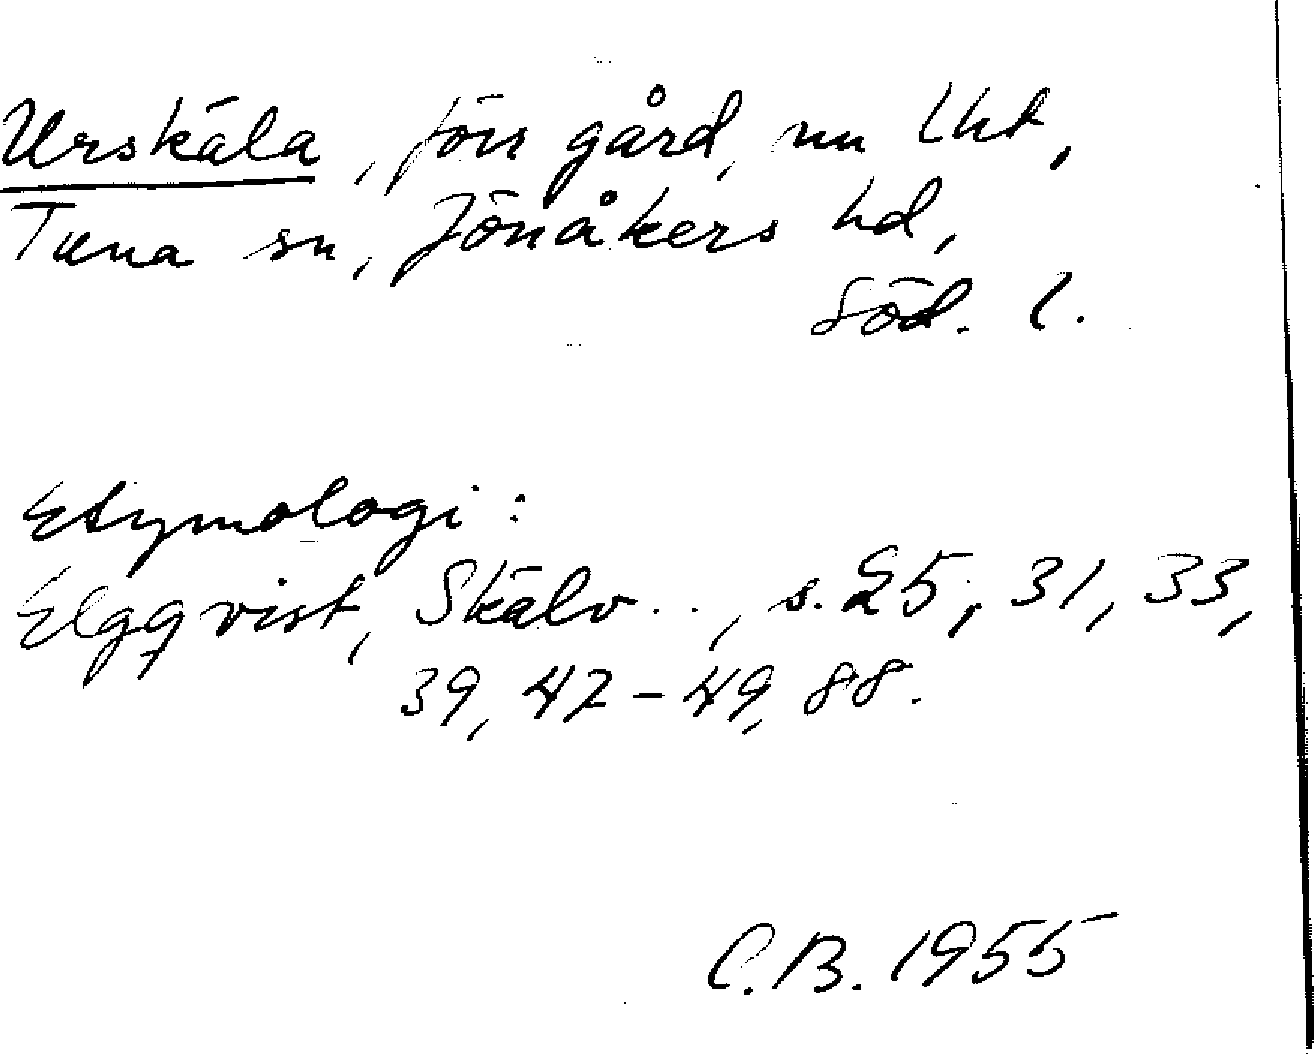 Urskäla, förr gård, nu lht,
Tuna sn, Jönåkers hd,
Söd. l.
Etymologi:
Elgqvist, Skälv.., s. 25, 31, 33,
39, 47-49, 88.
C.B. 1955